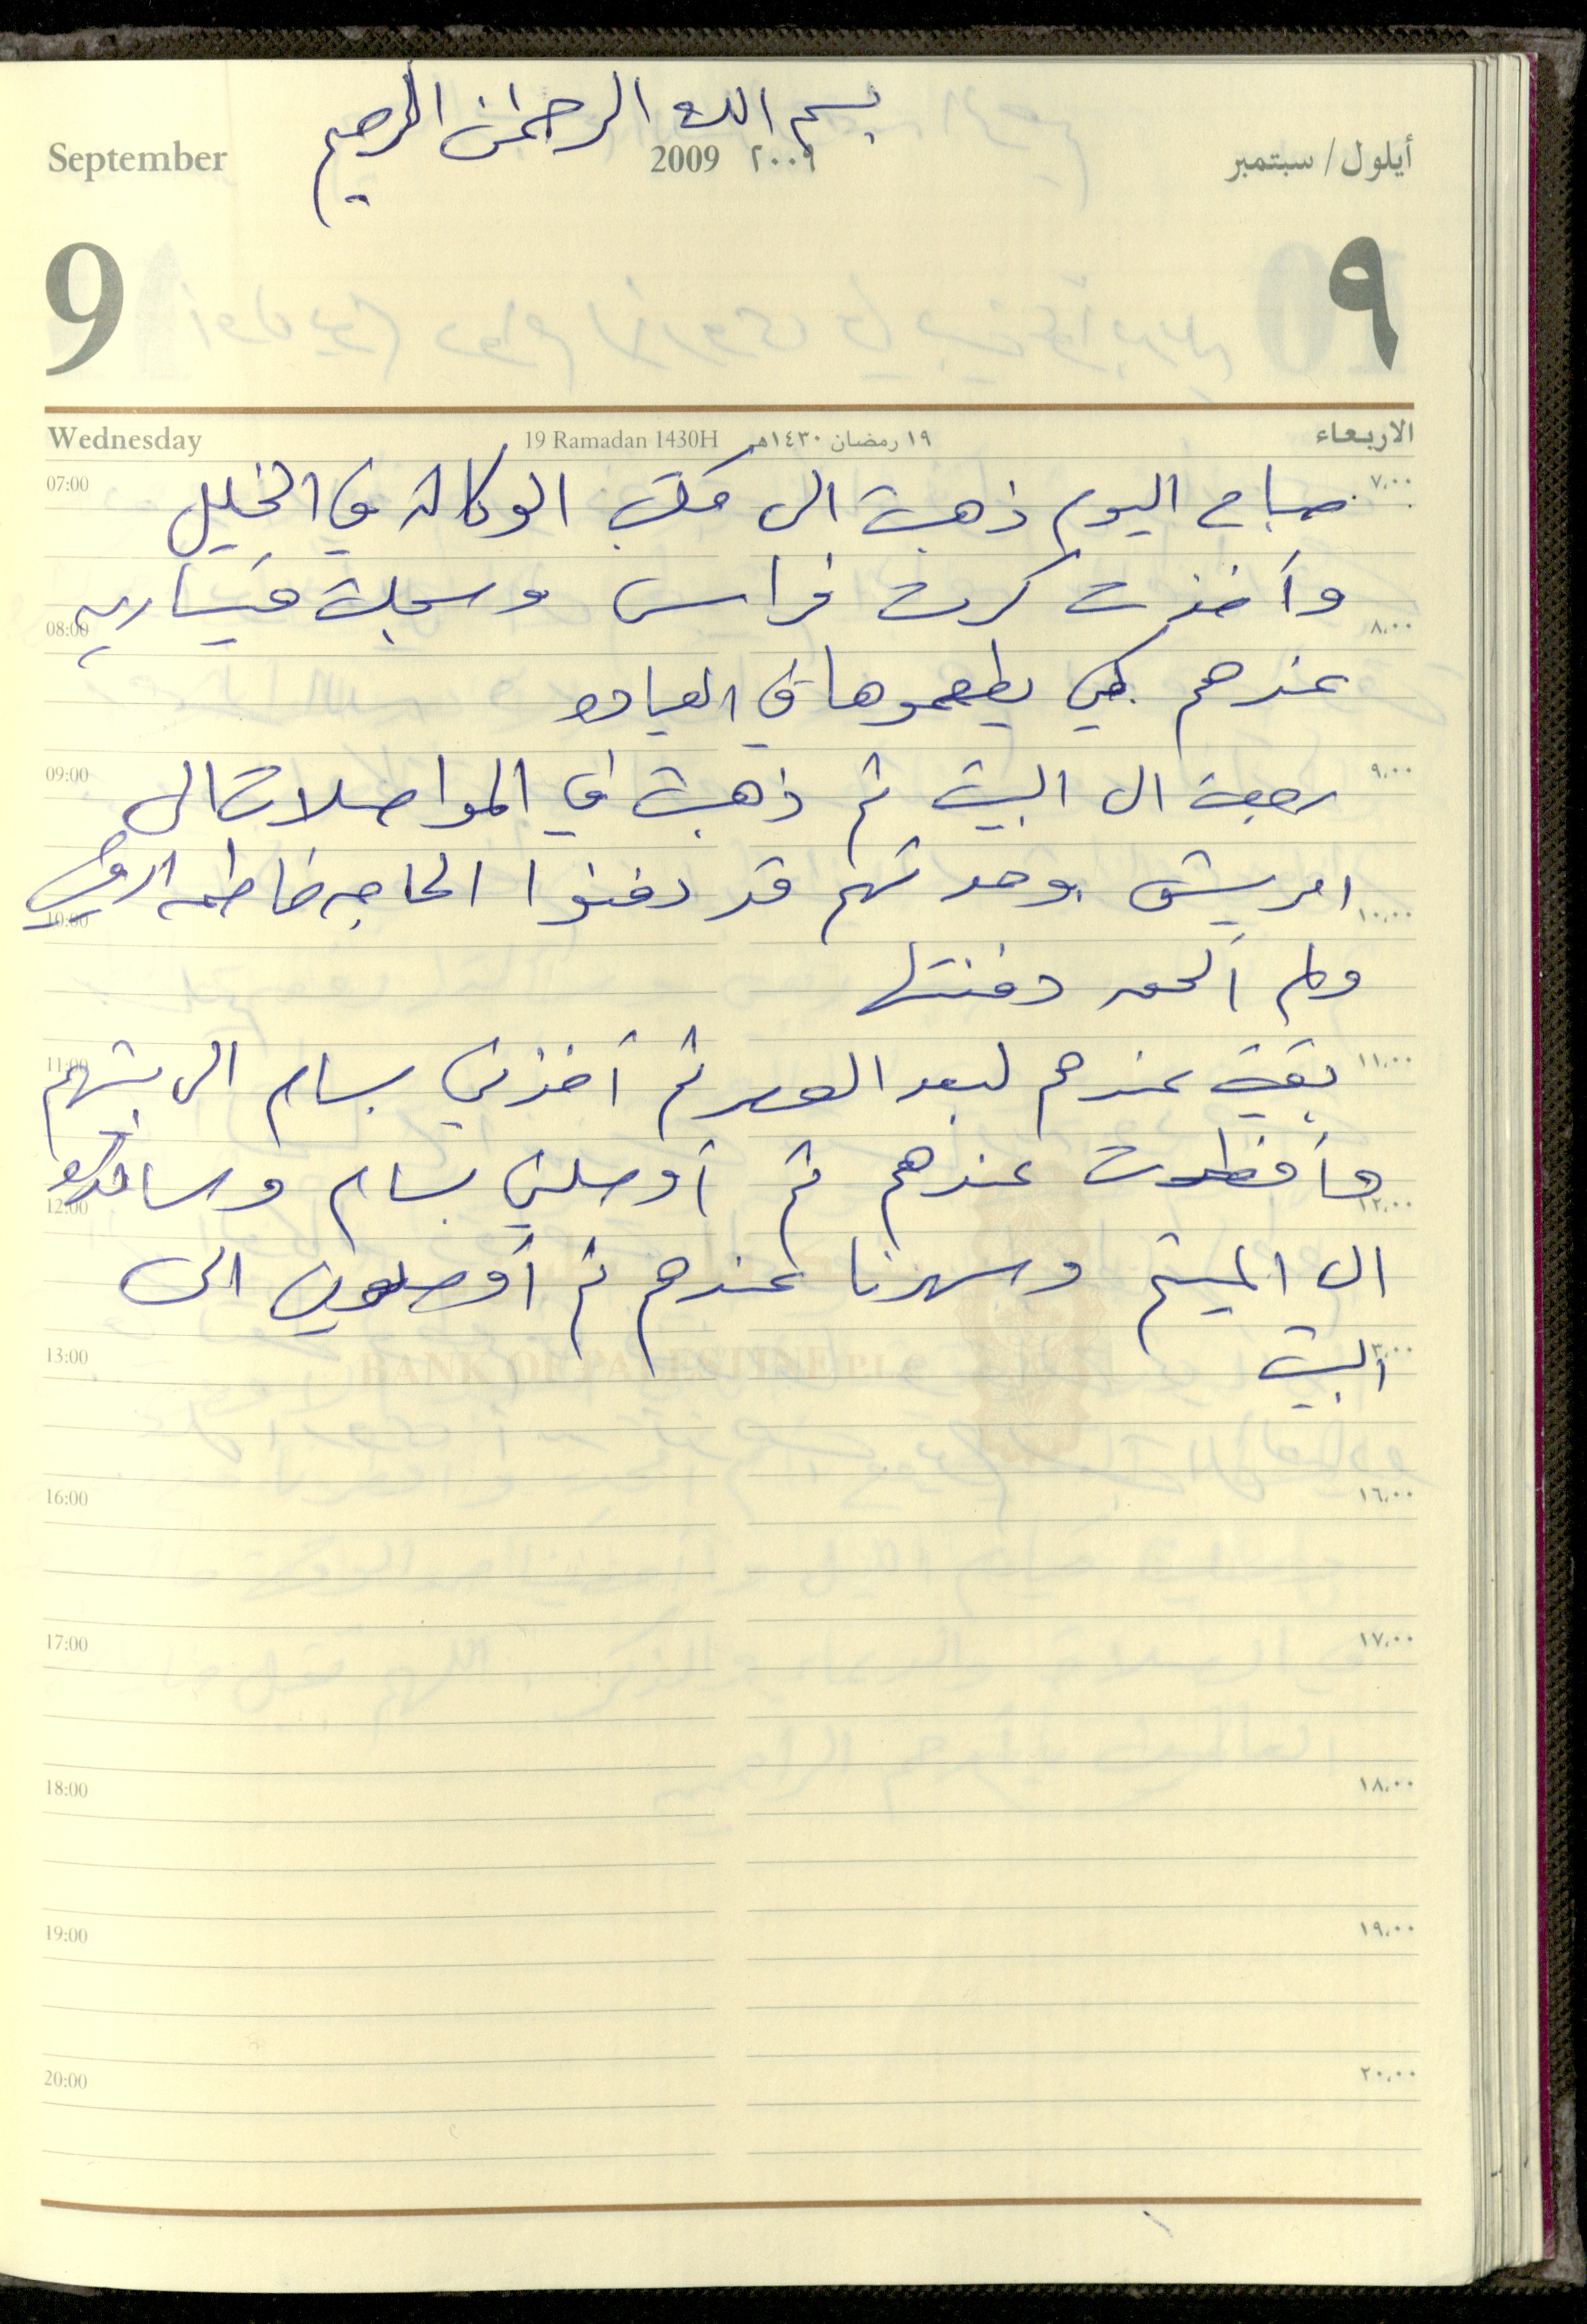 بسم الله الرحمن الرحيم
September 2009 ٢٠٠٩ أيلول / سبتمبر
9 ٩
Wednesday 19 Ramadan 1430H ١٩ رمضان ١٤٣٠هـ الاربعاء
07:00 صباح اليوم ذهبت الى مكتب الوكالة في الخليل ٧،٠٠
وأخذت كرت فراس وسجلت ميساريه
08:00 ٨،٠٠
عندهم كي يطعموها في العياده
09:00 رجعت الى البيت ثم ذهبت في المواصلات الى ٩،٠٠
امريش وجدتهم قد دفنوا الحاجه فاطمه
10:00 ١٠،٠٠
ولم ألحق دفنتها
11:00 بقيت عندهم لبعد العصر ثم أخذني بسام الى بيتهم ١١،٠٠
وأفطرت عندهم ثم أوصلني بسام
12:00 ١٢،٠٠
الى الميتم وسهرنا عندهم ثم أوصلوني الى
13:00 البيت ١٣،٠٠
BANK OF PALESTINE P.L.C
16:00 ١٦،٠٠
17:00 ١٧،٠٠
18:00 ١٨،٠٠
19:00 ١٩،٠٠
20:00 ٢٠،٠٠